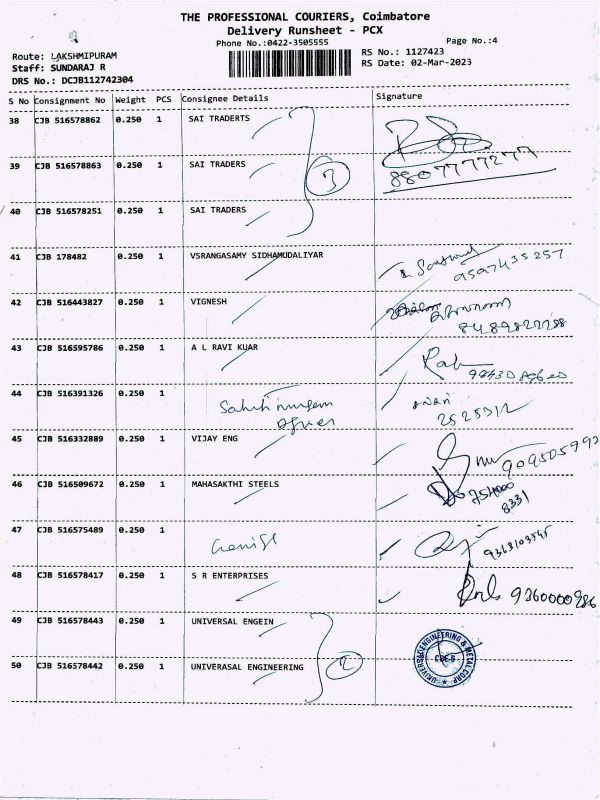 THE PROFESSIONAL COURIERS, Coimbatore
Delivery Runsheet - PCX
Phone No.:0422-3505555
Page No.:4
Route: LAKSHMIPURAM
RS No.: 1127423
Staff: SUNDARAJ R
RS Date: 02-Mar-2023
DRS No.: DCJB112742304
S No Consignment No Weight PCS Consignee Details Signature
38 CJB 516578862 0.250 1 SAI TRADERTS
39 CJB 516578863 0.250 1 SAI TRADERS 3 8807777277
40 CJB 516578251 0.250 1 SAI TRADERS
41 CJB 178482 0.250 1 VSRANGASAMY SIDHAMUDALIYAR 9597435257
42 CJB 516443827 0.250 1 VIGNESH
43 CJB 516595786 0.250 1 A L RAVI KUAR
44 CJB 516391326 0.250 1
45 CJB 516332889 0.250 1 VIJAY ENG
46 CJB 516509672 0.250 1 MAHASAKTHI STEELS
8331
47 CJB 516575489 0.250 1
48 CJB 516578417 0.250 1 S R ENTERPRISES 9360000986
49 CJB 516578443 0.250 1 UNIVERSAL ENGEIN
50 CJB 516578442 0.250 1 UNIVERASAL ENGINEERING 2